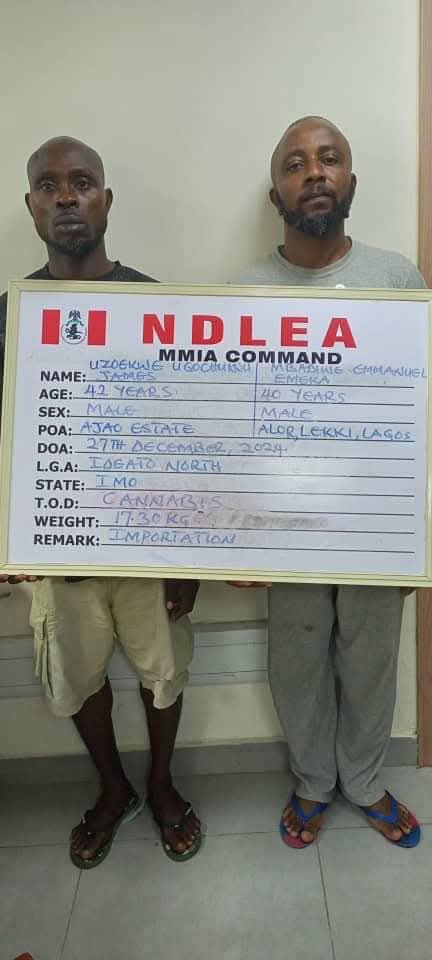 NDLEA
MMIA COMMAND
UZOEKWE UGOCHUKWU MBADIWE EMMANUEL
NAME: JAMES EMEKA
AGE: 42 YEARS 40 YEARS
SEX: MALE MALE
POA: AJAO ESTATE ALOR, LEKKI, LAGOS
DOA: 27TH DECEMBER, 2024.
L.G.A: IDEATO NORTH
STATE: IMO
T.O.D: CANNABIS
WEIGHT: 17.30KG
REMARK: IMPORTATION